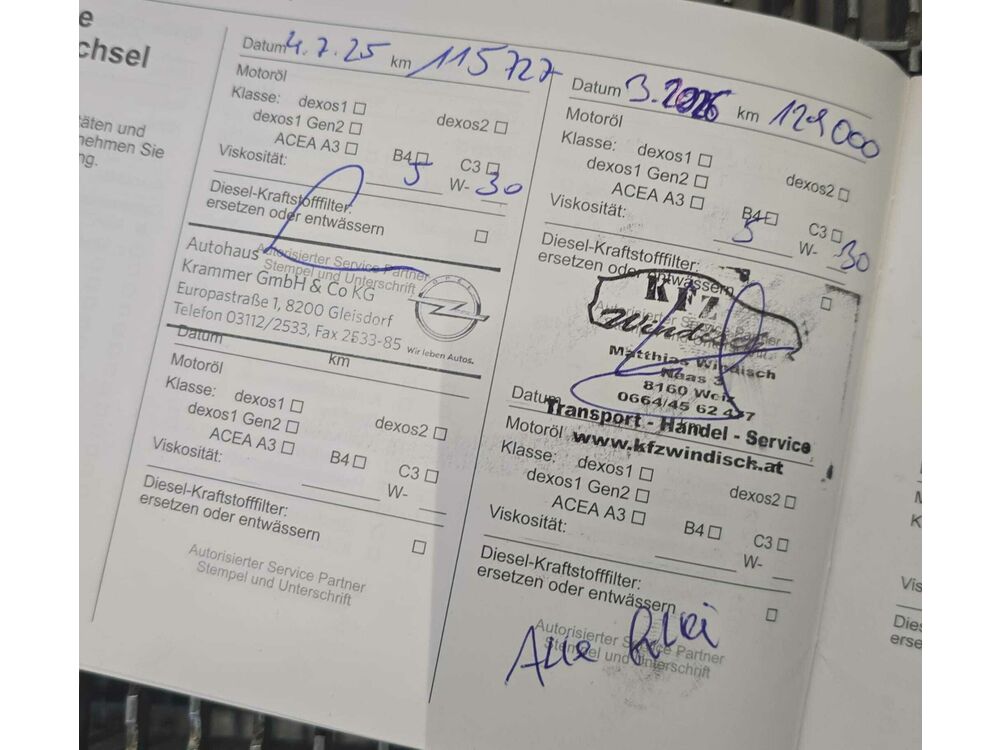 e
chsel
täten und
nehmen Sie
ng.
Datum 4.7.25 km 115727
Motoröl
Klasse: dexos1 ☐
dexos1 Gen2 ☐ dexos2 ☐
ACEA A3 ☐ B4 ☐ C3 ☐
Viskosität: 5 W- 30
Diesel-Kraftstofffilter:
ersetzen oder entwässern ☐
Autorisierter Service Partner
Stempel und Unterschrift
Autohaus
Krammer GmbH & Co KG
Europastraße 1, 8200 Gleisdorf
Telefon 03112/2533, Fax 2533-85
OPEL
Wir leben Autos.
Datum km
Motoröl
Klasse: dexos1 ☐
dexos1 Gen2 ☐ dexos2 ☐
ACEA A3 ☐ B4 ☐ C3 ☐
Viskosität: W-
Diesel-Kraftstofffilter:
ersetzen oder entwässern ☐
Autorisierter Service Partner
Stempel und Unterschrift
Datum 3.2026 km 129000
Motoröl
Klasse: dexos1 ☐
dexos1 Gen2 ☐ dexos2 ☐
ACEA A3 ☐ B4 ☐ C3 ☐
Viskosität: 5 W- 30
Diesel-Kraftstofffilter:
ersetzen oder entwässern ☐
KFZ
Windisch
Matthias Windisch
Naas 3
8160 Weiz
0664/45 62 437
Transport - Handel - Service
www.kfzwindisch.at
Datum
Motoröl
Klasse: dexos1 ☐
dexos1 Gen2 ☐ dexos2 ☐
ACEA A3 ☐ B4 ☐ C3 ☐
Viskosität: W-
Diesel-Kraftstofffilter:
ersetzen oder entwässern ☐
Autorisierter Service Partner
Stempel und Unterschrift
Alle
K
Vis
Dies
erse